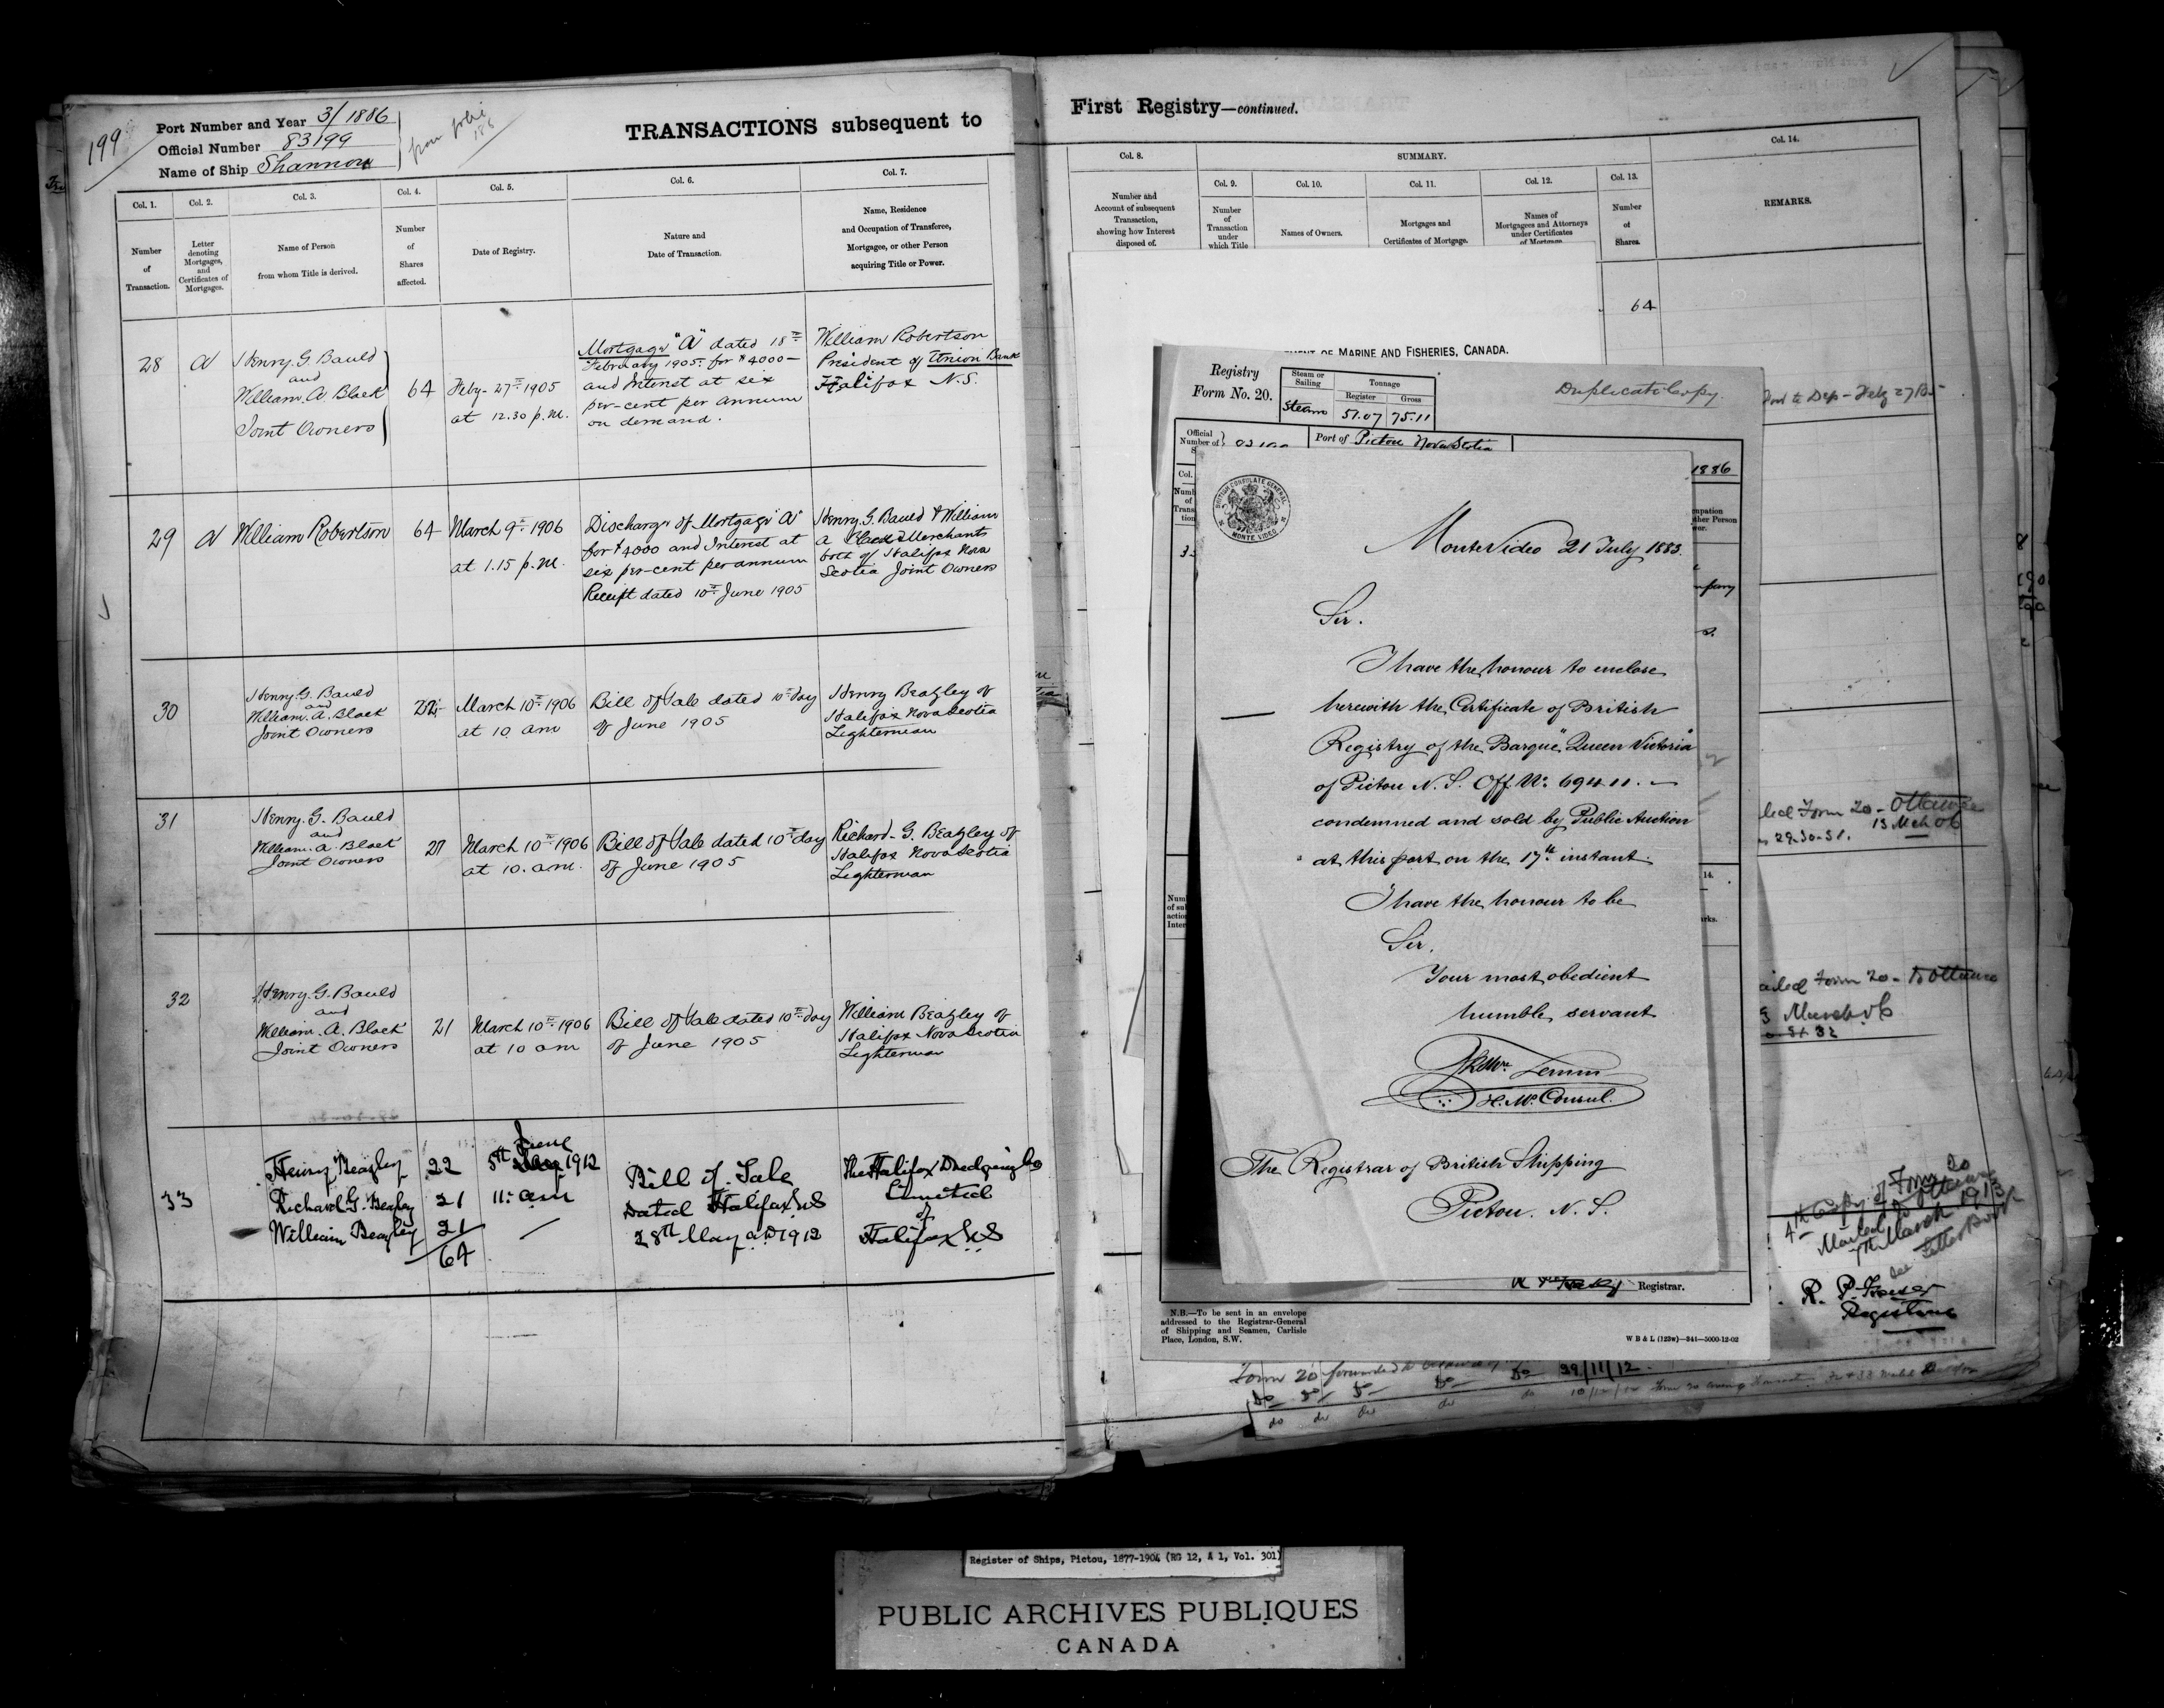 199
Port Number and Year 3/1886
Official Number 83199
Name of Ship Shannon
from folio
188
TRANSACTIONS subsequent to
Col. 1.
Col. 2.
Col. 3.
Col. 4.
Col. 5.
Col. 6.
Col. 7.
Number
of
Transaction.
Letter
denoting
Mortgages,
and
Certificates of
Mortgages.
Name of Person
from whom Title is derived.
Number
of
Shares
affected.
Date of Registry.
Nature and
Date of Transaction.
Name, Residence
and Occupation of Transferee,
Mortgagee, or other Person
acquiring Title or Power.
28
A
Henry. G. Bauld
and
William. A. Black
Joint Owners
64
Feby- 27th 1905
at 12.30 p.m.
Mortgage "A" dated 18th
February 1905. for $4000—
and Interest at six
per-cent per annum
on demand.
William Robertson
President of Union Bank
Halifax N.S.
29
A
William Robertson
64
March 9th 1906
at 1.15 p.m.
Discharge of Mortgage "A"
for $4000 and Interest at
six per-cent per annum
Receipt dated 10th June 1905
Henry. G. Bauld & William
A Black Merchants
both of Halifax Nova
Scotia Joint Owners
30
Henry. G. Bauld
and
William. A. Black
Joint Owners
22
March 10th 1906
at 10 am
Bill of Sale dated 10th day
of June 1905
Henry Beazley of
Halifax Nova Scotia
Lighterman
31
Henry. G. Bauld
and
William. A. Black
Joint Owners
21
March 10th 1906
at 10. am.
Bill of Sale dated 10th day
of June 1905
Richard. G. Beazley of
Halifax Nova Scotia
Lighterman
32
Henry. G. Bauld
and
William. A. Black
Joint Owners
21
March 10th 1906
at 10 am
Bill of Sale dated 10th day
of June 1905
William Beazley of
Halifax Nova Scotia
Lighterman
33
Henry Beazley
Richard G. Beazley
William Beazley
22
21
21
64
June
5th 1912
11. am
Bill of Sale
Dated Halifax N.S
28th May AD 1912
The Halifax Dredging Co
Limited
of
Halifax N.S
First Registry—continued.
Col. 8.
SUMMARY.
Col. 14.
Col. 9.
Col. 10.
Col. 11.
Col. 12.
Col. 13.
Number and
Account of subsequent
Transaction,
showing how Interest
disposed of.
Number
of
Transaction
under
which Title
Names of Owners.
Mortgages and
Certificates of Mortgage.
Names of
Mortgagees and Attorneys
under Certificates
of Mortgage.
Number
of
Shares.
REMARKS.
64
OF MARINE AND FISHERIES, CANADA.
Registry
Form No. 20.
Steam or
Sailing
Tonnage
Register
Gross
Steam
51.07
75.11
Duplicate Copy
to Dep- Feby 27/05
Official
Number of
Port of Pictou Nova Scotia
1886
BRITISH CONSULATE GENERAL
MONTE VIDEO
Monte Video 21 July 1883.
Sir.
I have the honour to enclose
herewith the Certificate of British
Registry of the Barque "Queen Victoria"
of Pictou N. S. Off. No. 69411.—
condemned and sold by Public Auction
at this port on the 17th instant.
I have the honour to be
Sir,
Your most obedient
humble servant
H.M. Consul.
The Registrar of British Shipping
Pictou. N. S.
Registrar.
N.B.—To be sent in an envelope
addressed to the Registrar-General
of Shipping and Seamen, Carlisle
Place, London, S.W.
W B & L (123w)—341—5000-12-02
Form 20 - Ottawa
13 Mch 06
29-30-31.
Form 20 - to Ottawa
March 06
4th Copy of Form 20
Mailed to Ottawa
7th March 1913
see Letter Book
R. P. Fraser
Registrar
Form 20 forwarded to Ottawa Do 29/11/12.
Register of Ships, Pictou, 1877-1904 (RG 12, A 1, Vol. 301)
PUBLIC ARCHIVES PUBLIQUES
CANADA